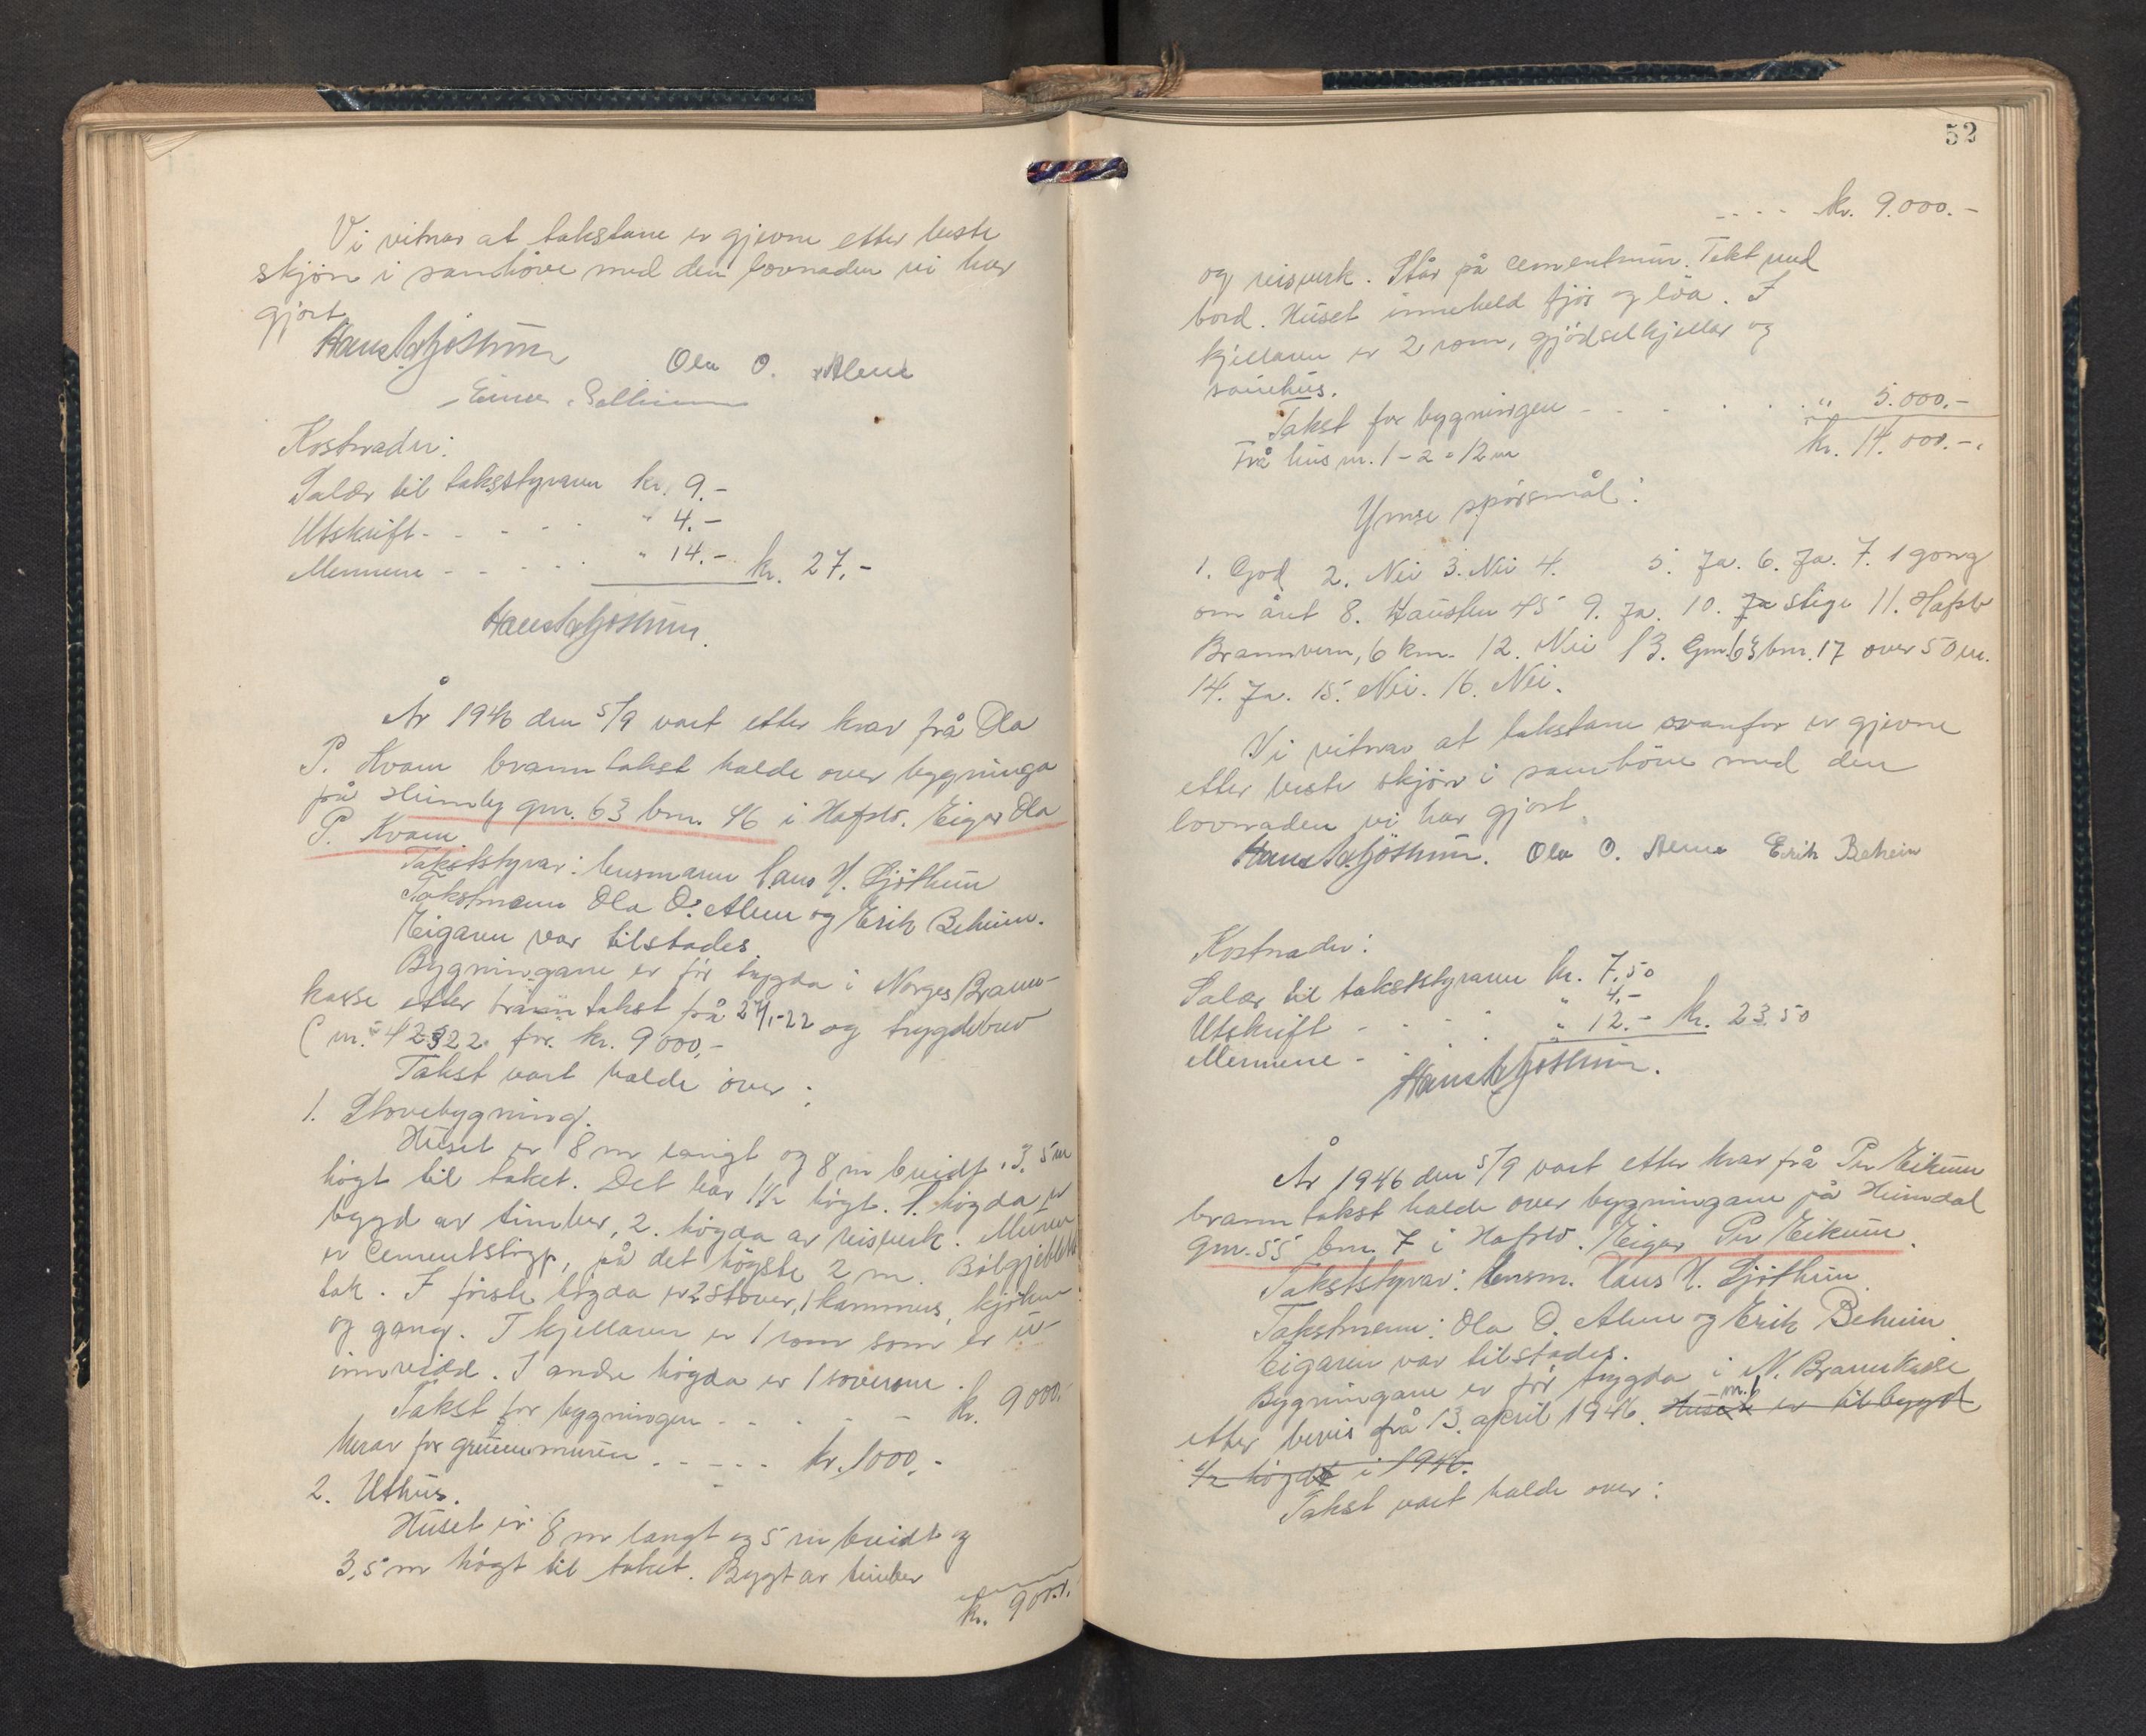 Vi vitnar at takstane er gjevne etter beste
skjön i samhöve med den lovnaden vi har
gjort.
Ola O. Alme
Kostnader:
Salær til takststyraren kr. 9.-
Utskrift - - - - " 4.-
Mennene - - - - " 14.- kr. 27,-
År 1946 den 5/9 vart etter krav frå Ola
P. Kvam branntakst halde over bygninga
på Heimly gnr. 63 bnr. 46 i Hafslo. Eigar Ola
P. Kvam.
Takststyrar: lensmann Hans H. Sjöthun
Takstmenn Ola O. Alme og Erik Beheim.
Eigaren var tilstades.
Bygningane er för trygda i Norges Brann-
kasse etter branntakst på 24/1-22 og trygdebrev
( nr. 42322 for kr. 9000,-
Takst vart halde over:
1. Stovebygning.
Huset er 8 m langt og 8 m breidt. 3,5 m
högt til taket. Det har 1 1/2 högt. 1. högda er
bygd av timber, 2. högda av reisverk. Muren
er Cementstöyp, på det högste 2 m.
tak. I förste högda er 2 stover, 1 kammers, kjöken
og gang. I kjellaren er 1 rom som er u-
innreidd. I andre högda er 1 soverom.
Takst for bygningen - - - - - kr. 9000.-
Herav for grunnmuren - - - - kr. 1000.-
2. Uthus.
Huset er 8 m langt og 5 m breidt og
3,5 m högt til taket. Bygt av timber
kr. 9000.-
52
- - - - kr. 9.000.-
og reisverk. Står på cementmur. Tekt med
bord. Huset inneheld fjös og löa. I
kjellaren er 2 rom, gjödselkjellar og
sauehus.
Takst for bygningen - - - - - " 5.000.-
kr. 14.000.-
Frå hus nr. 1 - 2 = 12 m
Ymse spörsmål:
1. God 2. Nei 3. Nei 4. 5. Ja. 6. Ja. 7. 1 gong
om året 8. Hausten 45 9. Ja. 10. Ja stige 11. Hafslo
Brannvern, 6 km. 12. Nei 13. Gnr. 63 bnr. 17 over 50 m.
14. Ja. 15. Nei. 16. Nei.
Vi vitnar at takstane ovanfor er gjevne
etter beste skjön i samhöve med den
lovnaden vi har gjort.
Hans H. Sjöthun. Ola O. Alme Erik Beheim
Kostnader:
Salær til takststyraren kr. 7,50
Utskrift - - - - " 4.-
Mennene - - - - " 12.- kr. 23.50
Hans H. Sjöthun.
År 1946 den 5/9 vart etter krav frå Per Eikum
branntakst halde over bygningane på Heimdal
gnr. 55 bnr. 7 i Hafslo. Eigar Per Eikum.
Takststyrar: lensm. Hans H. Sjöthun
Takstmenn: Ola O. Alme og Erik Beheim
Eigaren var tilstades.
Bygningane er för trygda i N. Brannkasse
etter bevis frå 13. april 1946. Huset nr. 1 er tilbygd
1/2 högde i 1946.
Takst vart halde over: